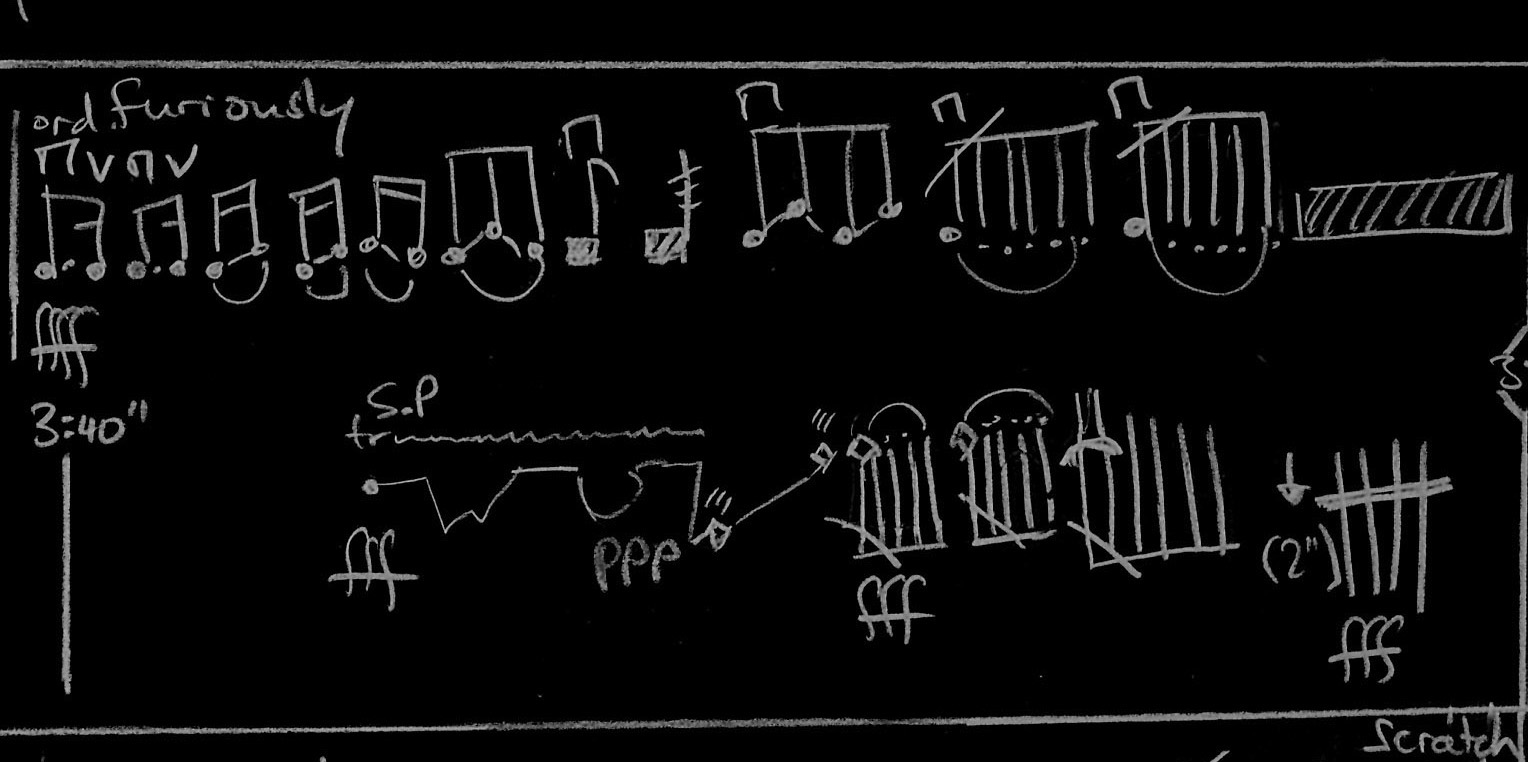 ord. furiously
ffff
3:40"
S.P
tr
fff
PPP
fff
(2")
fff
3
Scratch